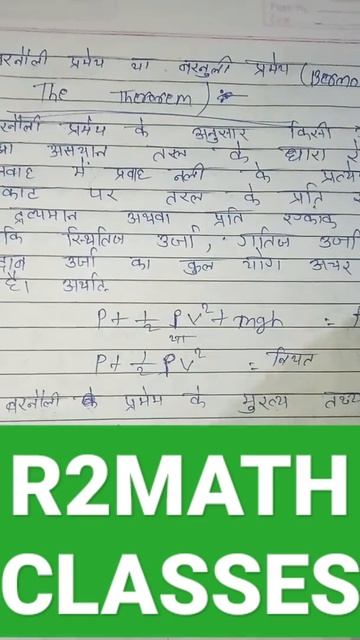 बरनौली प्रमेय या बरनुली प्रमेय (Berno
The Theorem) :-
बरनौली प्रमेय के अनुसार किसी
असम्पीड्य तरल के धारा रे
प्रवाह में प्रवाह नली के प्रत्ये
काट पर तरल के प्रति ए
द्रव्यमान अथवा प्रति एकांक
कि स्थितिज उर्जा, गतिज उर्जा
दाब उर्जा का कुल योग अचर
है। अर्थात
P + 1/2 ρv² + mgh =
या
P + 1/2 ρv² = नियत
बरनौली के प्रमेय के मुख्य तथ्य
R2MATH
CLASSES